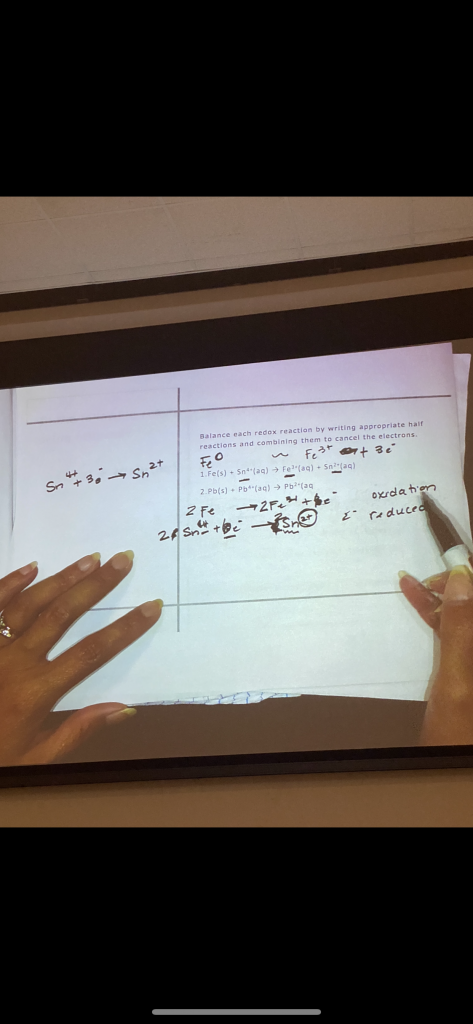 Balance each redox reaction by writing appropriate half
reactions and combining them to cancel the electrons.
Fe⁰ ~ Fe³⁺ + 3e⁻
1.Fe(s) + Sn⁴⁺(aq) → Fe³⁺(aq) + Sn²⁺(aq)
Sn⁴⁺ + 3e⁻ → Sn²⁺
2.Pb(s) + Pb⁴⁺(aq) → Pb²⁺(aq
2 Fe → 2Fe³⁺ + 6e⁻
oxidation
2 Sn⁴⁺ + 6e⁻ → Sn²⁺
reduced